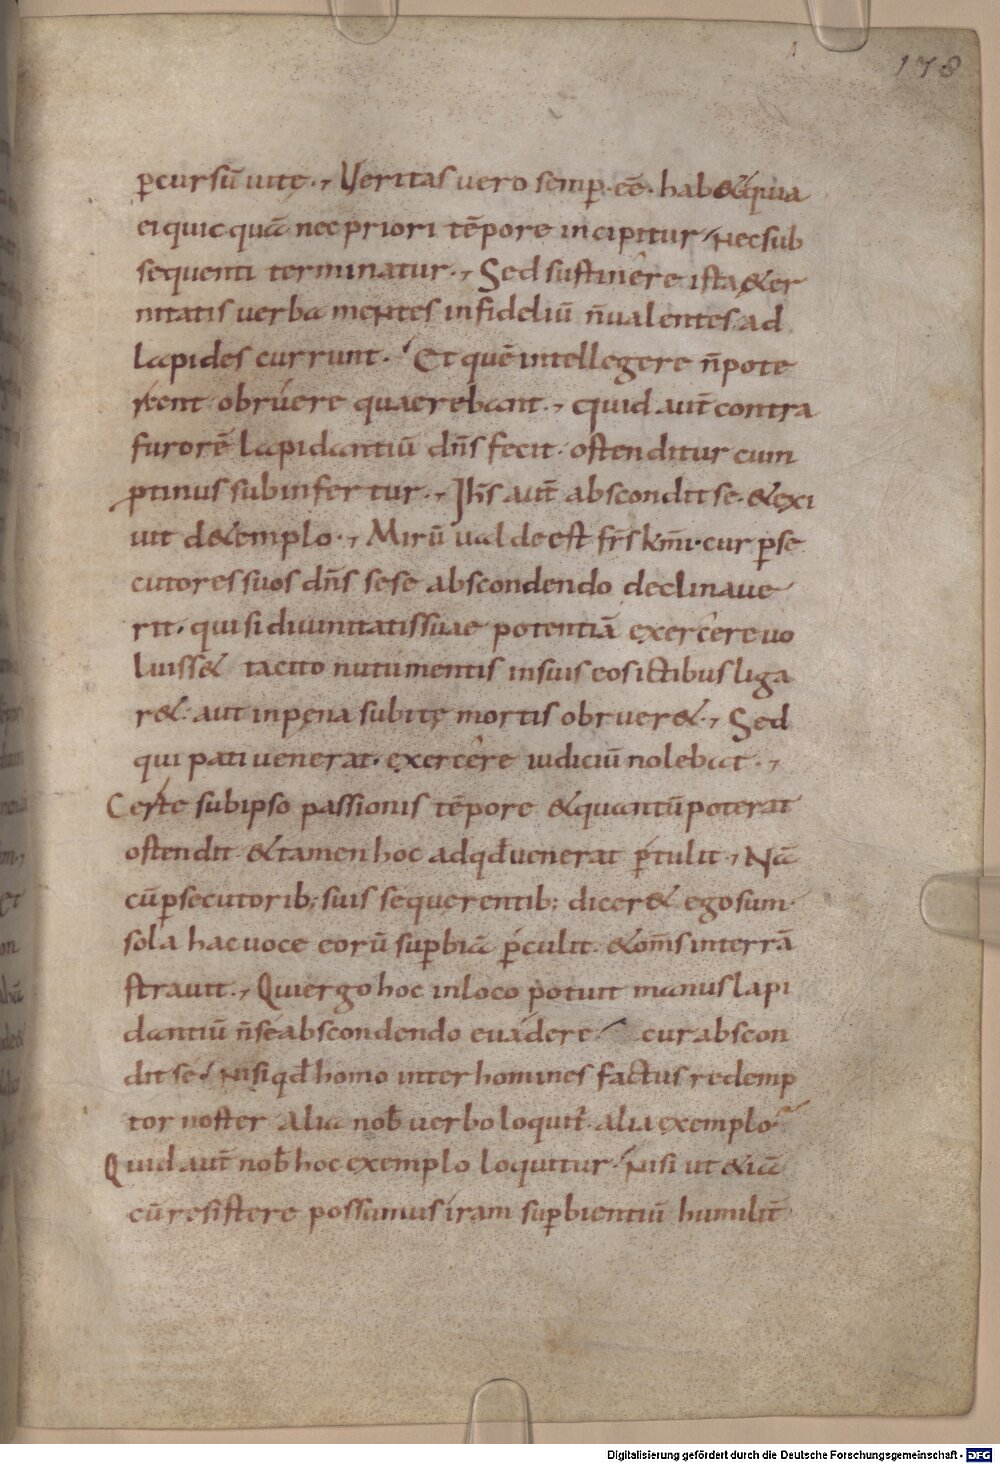 178
p̄cursū uitę. Veritas uero semp̄ eē. hab&quia
ei quic quā nec priori tēpore incipitur, Nec sub
sequenti terminatur. Sed sustinere ista &er
nitatis uerba mentes infideliū n̄ualentes ad
lapides currunt. Et quē intellegere n̄pote
rant obruere quaerebant. quid aut̄ contra
furorē lapidantiū dn̄s fecit. ostenditur cum
ptinus subinfertur. Ih̄s aut̄ abscondit se. &exi
uit de templo. Mirū ualde est fr̄s km̄i. cur p̄se
cutores suos dn̄s sese abscondendo declinaue
rit. qui si diuinitatis suae potentiā exercere uo
luiss& tacito nutu mentis in suis eos ictibus liga
r&. aut in pęna subitę mortis obruer&. Sed
qui pati uenerat. exercere iudiciū nolebat.
Certe sub ipso passionis tēpore &quantū poterat
ostendit &tamen hoc ad qd̄ uenerat p̄tulit. Nā
cū p̄secutorib; suis sequerentib; dicer& ego sum.
sola hac uoce eorū sup̄biā p̄culit. &om̄s in terrā
strauit. Qui ergo hoc in loco potuit manus lapi
dantiū n̄ se abscondendo euadere cur abscon
dit se? Nisi qd̄ homo inter homines factus redemp
tor noster alia nob̄ uerbo loquit̄. alia exemplo.
Quid aut̄ nob̄ hoc exemplo loquitur. Nisi ut &iā
cū resistere possumus iram sup̄bientiū humilit̄
Digitalisierung gefördert durch die Deutsche Forschungsgemeinschaft - DFG